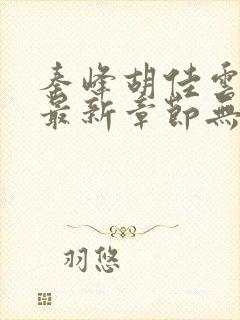 秦峰胡佳雲
最新章節無
羽悠